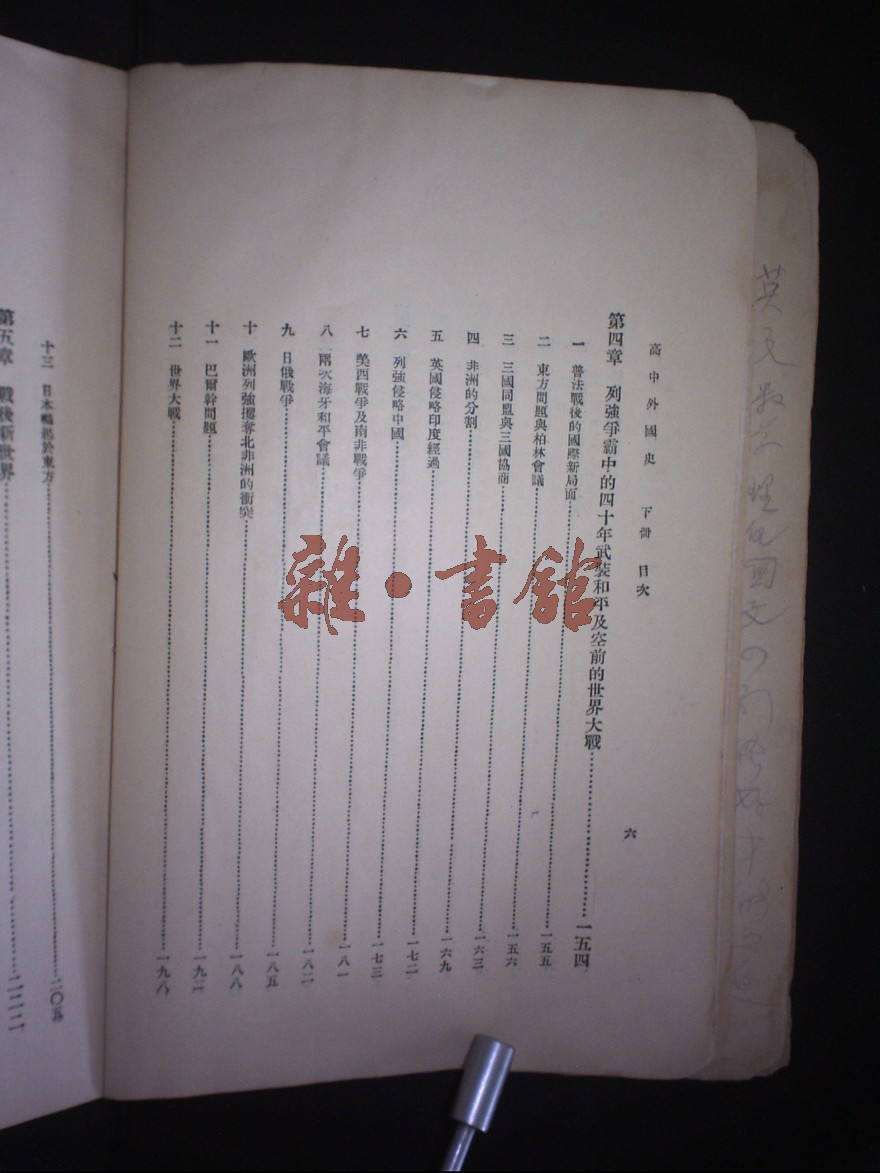 高中外國史 下冊 目次 六
第四章 列強爭霸中的四十年武裝和平及空前的世界大戰 一五四
一 普法戰後的國際新局面 一五五
二 東方問題與柏林會議 一五六
三 三國同盟與三國協商 一六三
四 非洲的分割 一六九
五 英國侵略印度經過 一七二
六 列強侵略中國 一七三
七 美西戰爭及南非戰爭 一八一
八 兩次海牙和平會議 一八二
九 日俄戰爭 一八五
十 歐洲列強攫奪北非洲的衝突 一八八
十一 巴爾幹問題 一九二
十二 世界大戰 一九八
十三 日本崛起於東方 二〇五
第五章 戰後新世界
雜·書館
英文 數 理化 國文